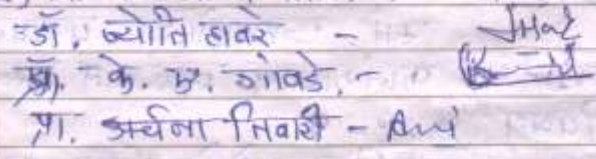 डॉ. ज्योति हावरे -
प्रा. के. ए. गावडे. -
प्रा. अर्चना तिवारी -